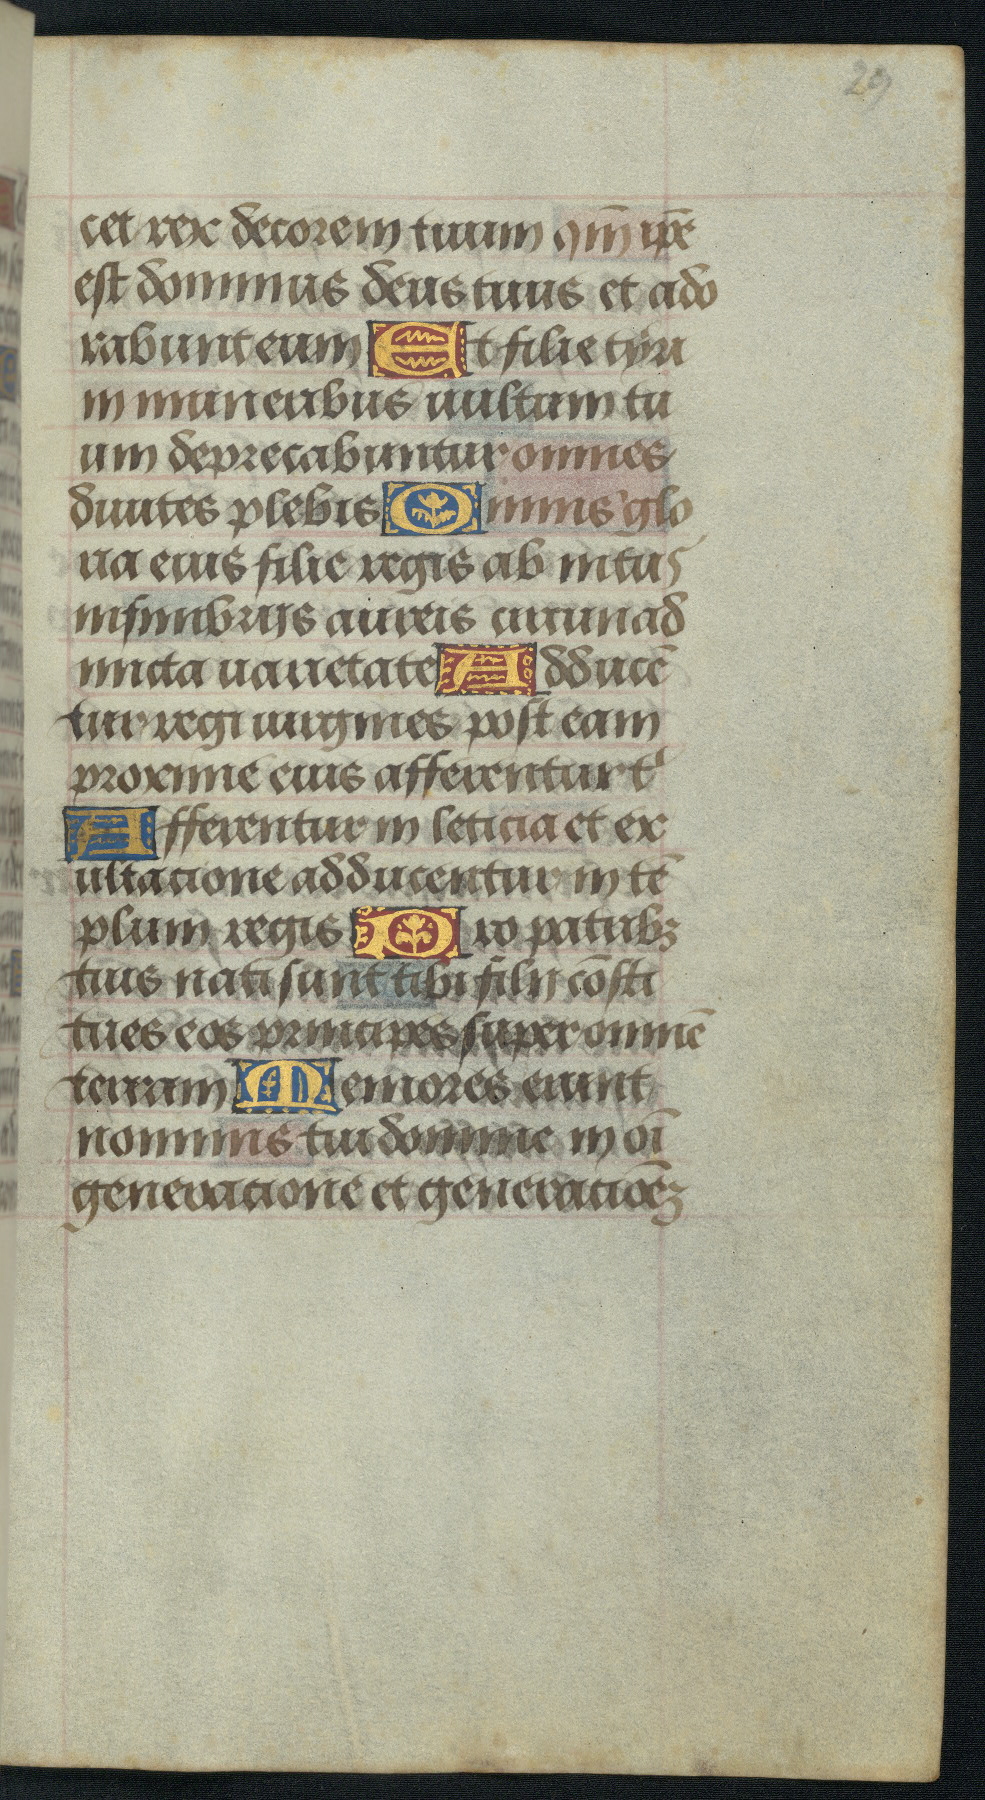 29
cet rex decorem tuum qm̄ ip̄e
est dominus deus tuus et ado
rabunt eum Et filie tyri
in muneribus uultum tu
um deprecabuntur omnes
diuites plebis Omnis glo
ria eius filie regis ab intus
in fimbrijs aureis circun ad
micta uarietate Adducē
tur regi uirgines post eam
proxime eius afferentur t'
Afferentur in leticia et ex
ultacione adducentur in tē
plum regis Pro patribꝫ
tuis nati sunt tibi filij cōsti
tues eos principes super omnē
terram Memores erunt
nominis tui domine in oī
generacione et generacioēꝫ